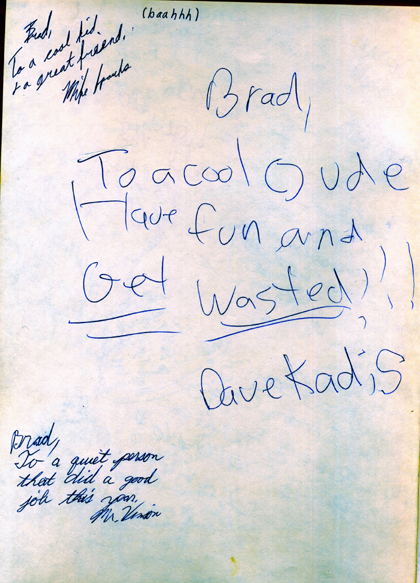 (baahhh)
Brad,
To a cool kid.
+ a great friend.
Mike
Brad,
To a cool Dude
Have fun and
Get Wasted!!!
Dave Kadis
Brad,
To a quiet person
that did a good
job this year.
Mr. Vinson